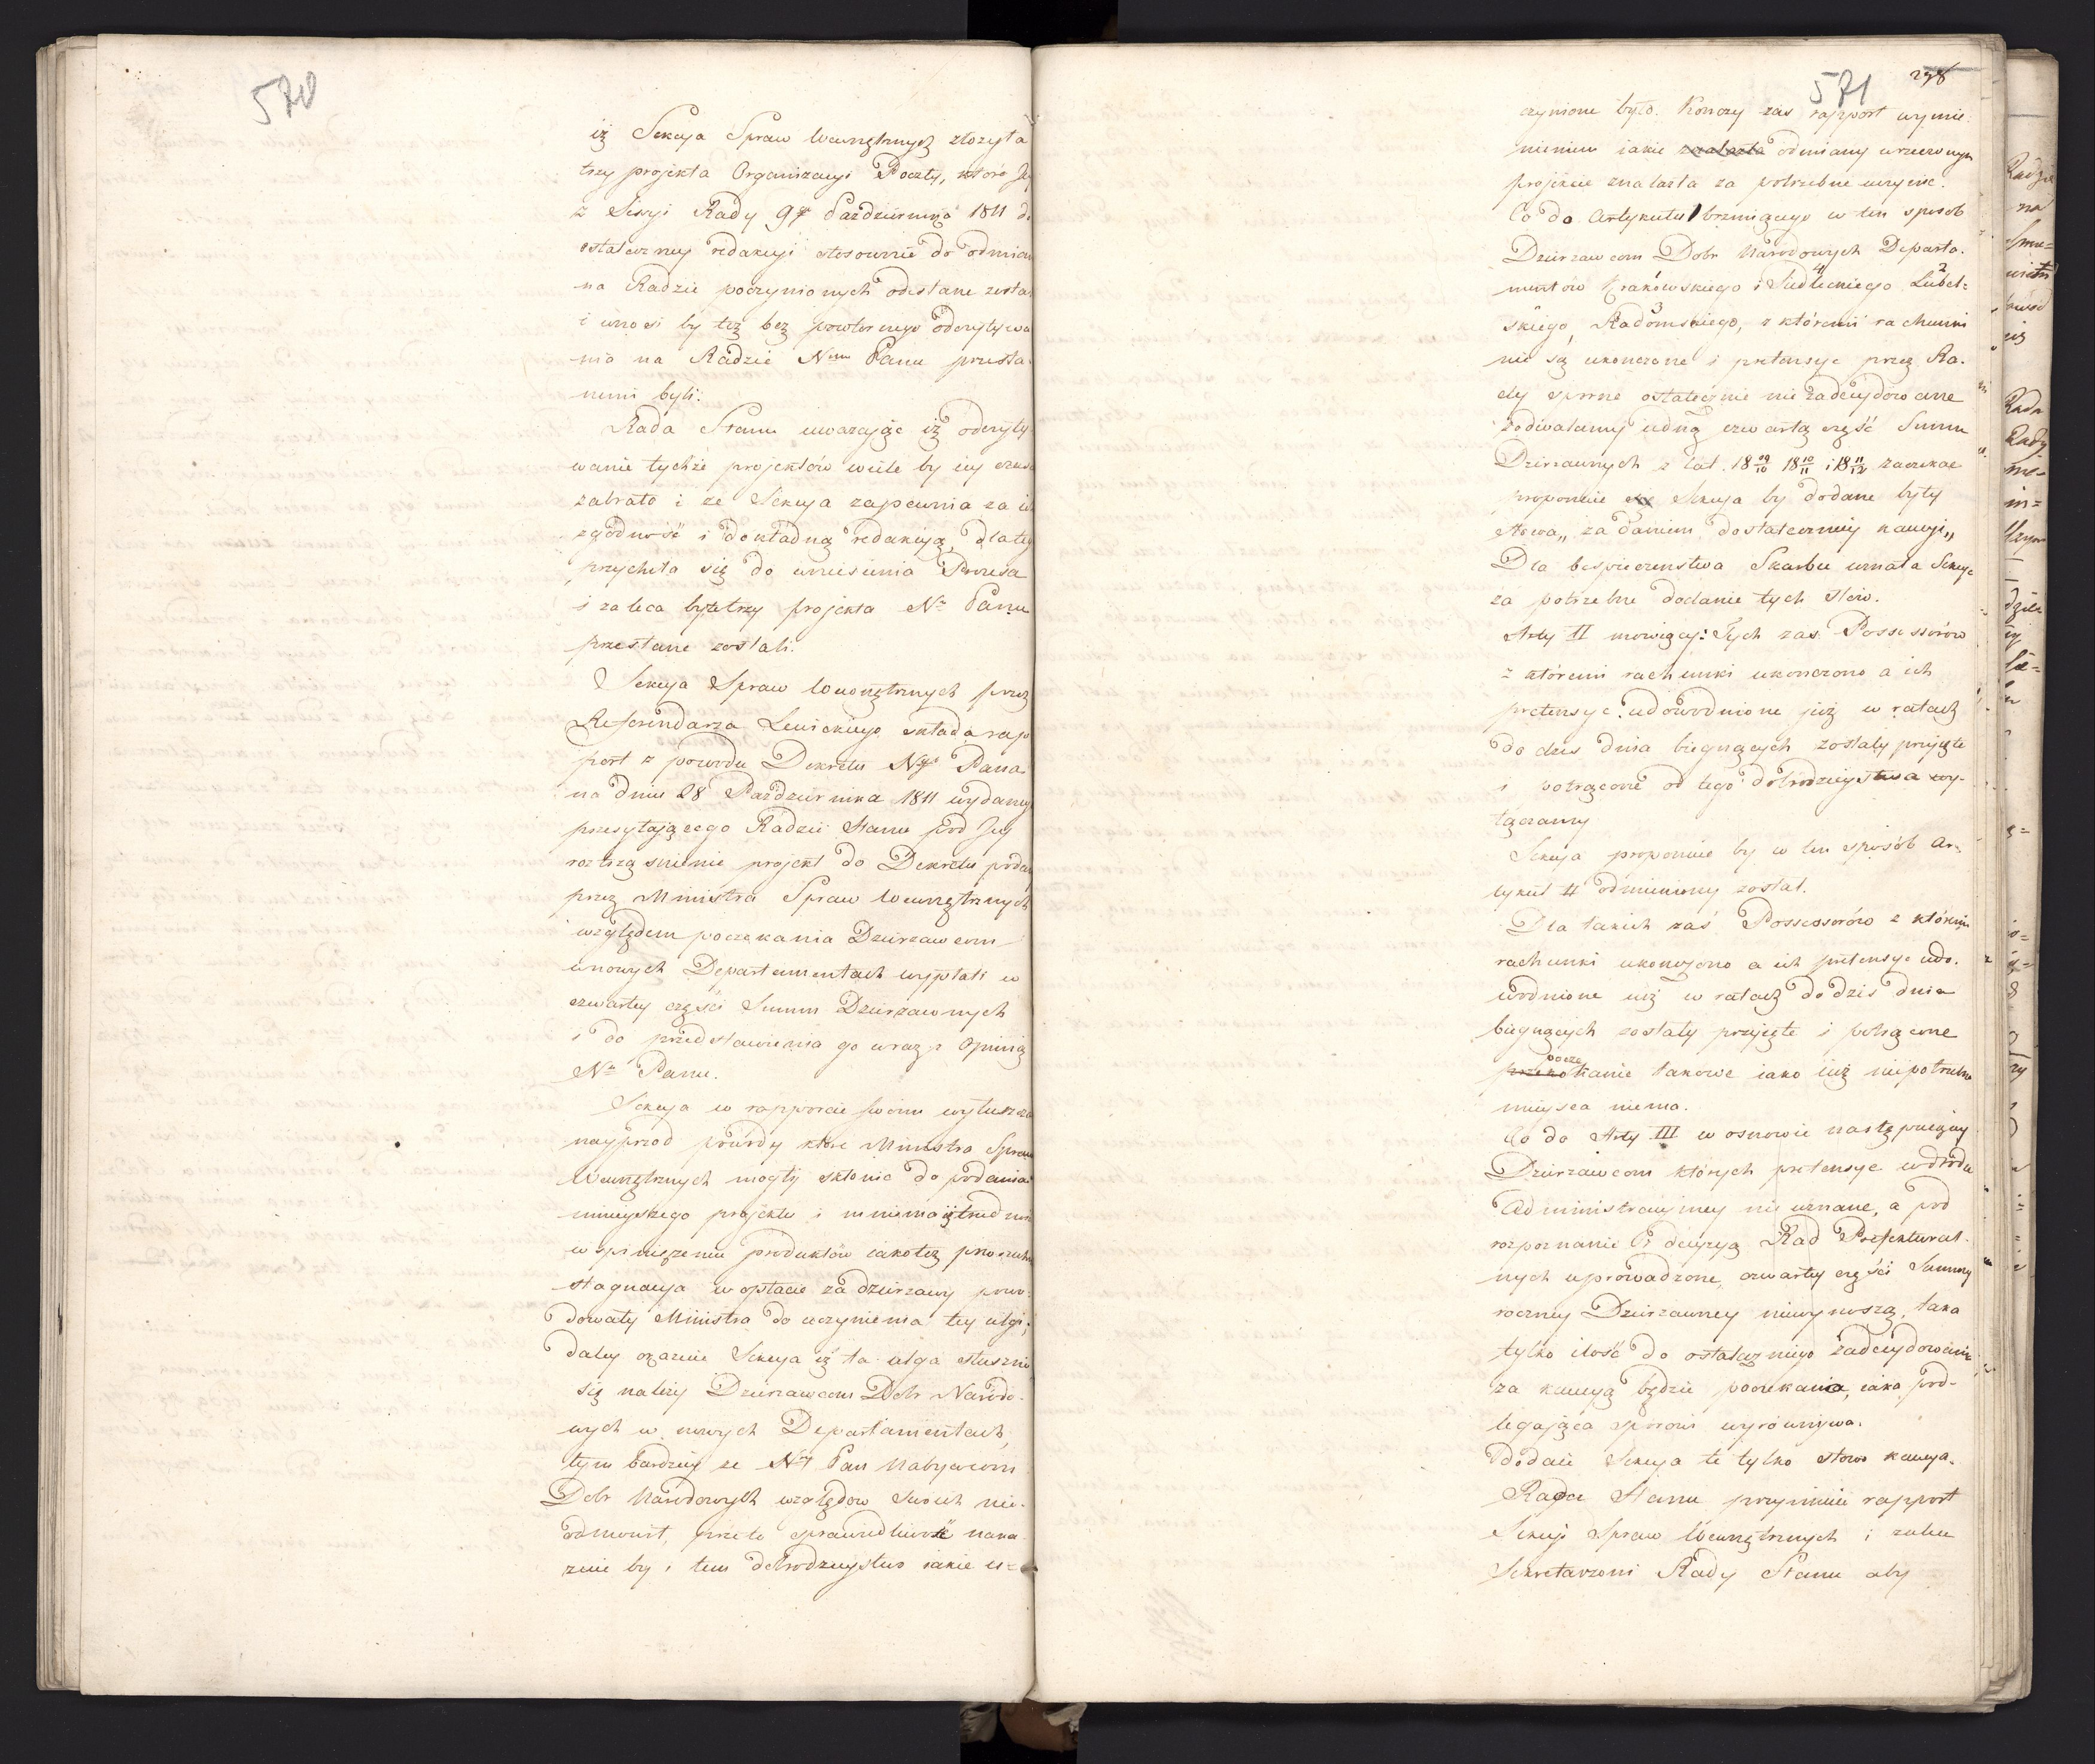 570
iż Sekcya Spraw Wewnętrznych złożyła
trzy projekta Organizacyi Poczty, które Jey
z Sessyi Rady 9go Października 1811 do
ostateczney redakcyi stosownie do odmian
na Radzie poczynionych odesłane zosta
i wnosi by też bez powtornego odczytywa
nia na Radzie Nmu Panu przesła
nemi byli.
Rada Stanu uważając iż odczyty
wanie tychże projektów wiele by iey czasu
zabrało i że Sekcya zapewnia za ich
zgodność i dokładną redakcyą, dla tey
przychyla się do wniesienia Prezesa
i zaleca by te trzy projekta Nu Panu
przesłane zostali.
Sekcya Spraw Wewnętrznych przez
Referendarza Lewickiego składa rap
port z powodu Dekretu Ngo Pana
na dniu 28 Października 1811 wydaney
przesyłaiącego Radzie Stanu pod Jey
roztrząśnienie projekt do Dekretu podany
przez Ministra Spraw Wewnętrznych
względem poczekania Dzierżawcom
w nowych Departamentach wypłati w
czwartey części Summ Dzierżawnych
i do przedstawienia go wraz z Opinią
Nu Panu.
Sekcya w rapporcie swoim wyłuszcza
nayprzod powody które Ministra Spraw
Wewnętrznych mogły skłonić do podania
ninieyszego projektu i mniema iż trudność
w spieniężeniu produktów iakoteż powszechna
stagnacya w opłacie za dzierżawy powo
dowały Ministra do uczynienia tey ulgi;
daley okazuie Sekcya iż ta ulga słusznie
się należy Dzierżawcom Dobr Narodo-
wych w nowych Departamentach,
tym bardziey że Ny Pan Nabywcom
Dobr Narodowych względow swoich nie-
odmowił, przeto sprawiedliwość naka
zuie by i tem dobrodzieystwo iakie u=
571
298
czynione było. Kończy zaś rapport wymie
nieniem iakie znalazła odmiany w rzeczonym
projekcie znalazła za potrzebne uczynić.
Co do Artykułu 1 brzmiącego w ten sposob
Dzierżawcom Dobr Narodowych Departa-
mentów Krakowskiego i Siedleckiego 4 Lubel= 2
skiego, Radomskiego 3, z któremi rachunki
nie są ukończone i pretensye przez Ra-
dy sporne ostatecznie nie zadecydowane
dozwalamy iedną czwartą część Summ
Dzierżawnych z lat 18 09/10 18 10/11 i 18 11/12 zaczekać
proponuie Sekcya by dodane były
słowa „za daniem dostateczney kaucyi„
Dla bespieczenstwa Skarbu uznała Sekcya
za potrzebne dodanie tych słów.
Arty II mowiący: Tych zaś Possessorów
z któremi rachunki ukończono a ich
pretensye udowodnione już w ratach
do dziś dnia biegnących zostały przyięte
i potrącone od tego dobrodzieystwa wy-
łączamy
Sekcya proponuie by w ten sposób Ar-
tykuł II odmieniony został.
Dla takich zaś Possessorów z którymi
rachunki ukończono a ich pretensye udo-
wodnione już w ratach do dziś dnia
biegnących zostały przyięte i potrącone
pocze
przekokanie takowe iako iuż niepotrzebne
mieysca niema.
Co do Arty III w osnowie następuiącey
Dzierżawcom których pretensye w drodze
Administracyiney nie uznane, a pod
rozpoznanie i decyzyą Rad Prefektural-
nych uprowadzone, czwartey części Summy
roczney Dzierżawney niewynoszą, taka
tylko ilość do ostatecznego zadecydowania
za kaucyą będzie poczekania, iaka pod-
legająca sporowi wyrównywa.
Dodaie Sekcya te tylko słowo kaucya.
Rada Stanu przyimuie rapport
Sekcyi Spraw Wewnętrznych i zaleca
Sekretarzowi Rady Stanu aby